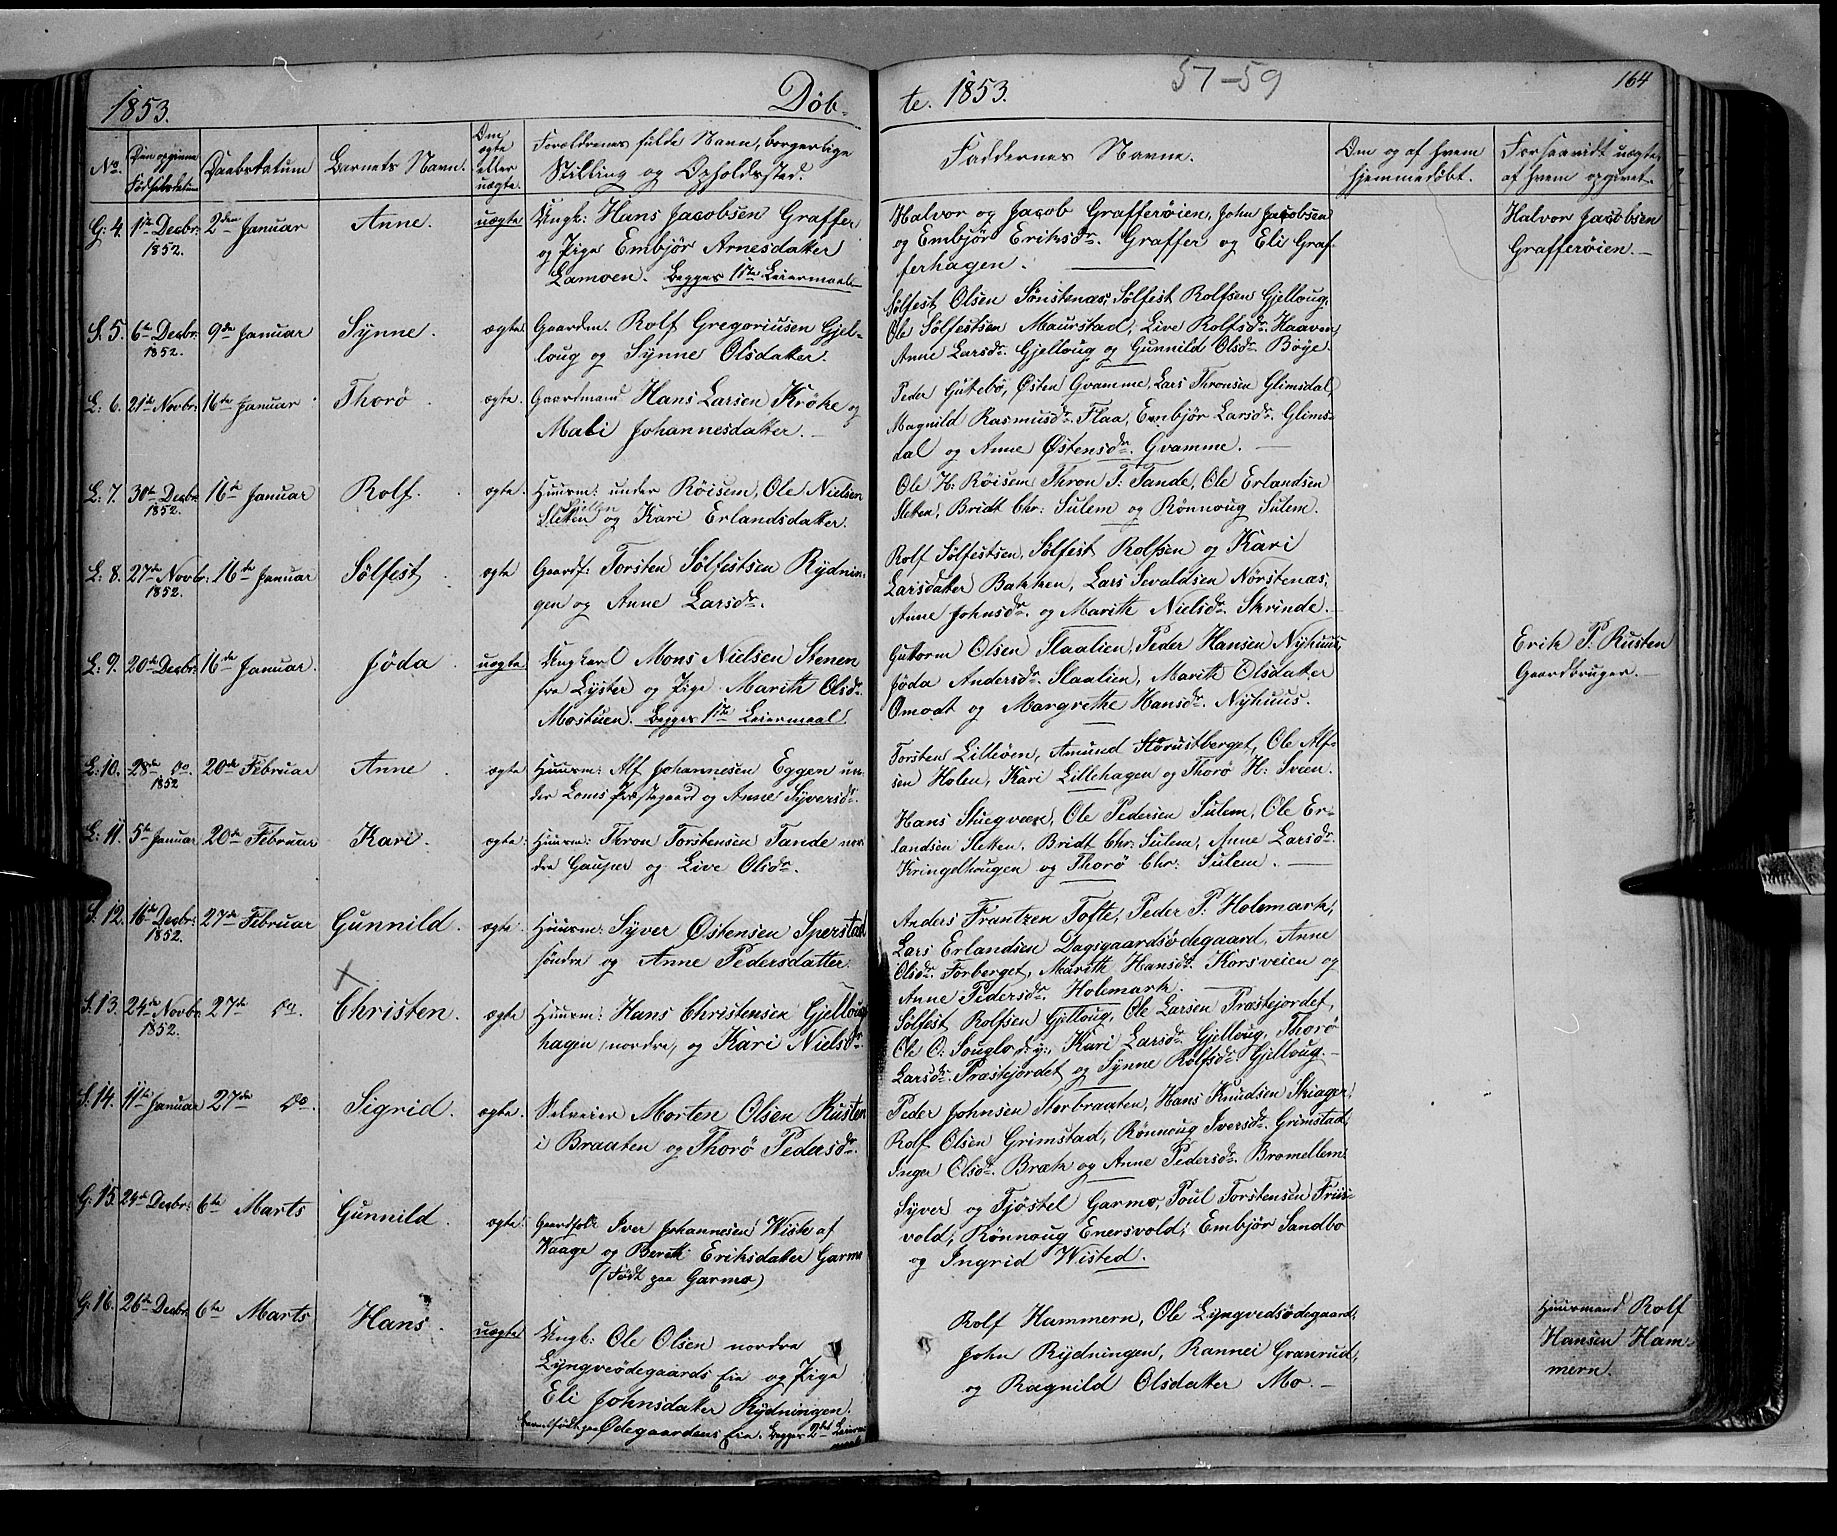 1853. Döb-
te. 1853. 57-59 164
No. Den opgivne Fødselsdatum Daabsdatum Barnets Navn. Om ægte eller uægte. Forældrenes fulde Navn, borgerlige Stilling og Opholdssted.
Faddernes Navne. Om og af hvem hjemmedöbt. Forsaavidt uægte, af hvem opgivet.
G: 4. 1ste Decbr: 2den Januar Anne. uægte Ungk: Hans Jacobsen Graffer
1852. og Pige Embjör Arnesdatter
Lamoen. Begges 1ste Leiermaal
Halvor og Jacob Grafferöien, John Jacobsen
og Embjör Eriksdr. Graffer og Eli Graf-
ferhagen.
Halvor Jacobsen
Grafferöien.
S. 5. 6te Decbr: 9de Januar Synne. ægte Gaardm: Rolf Gregoriusen Gjel-
1852. loug og Synne Olsdatter.
Sölfest Olsen Sönstenæs, Sölfest Rolfsen Gjelloug,
Ole Sölfestsen Maurstad, Live Rolfsdr. Haaven,
Anne Larsdr. Gjelloug og Gunnild Olsdr. Böye.
L: 6. 21de Novbr: 16te Januar Thorö. ægte. Gaardmand Hans Larsen Kröke og
Mali Johannesdatter.
Peder Gutebö, Østen Gvamme, Lars Thronsen Glimsdal,
Magnild Rasmusdr. Flaa, Embjör Larsdr. Glims-
dal og Anne Østensdr. Gvamme.
L: 7. 30te Decbr: 16de Januar Rolf. ægte. Huusm: under Röisem, Ole Nielsen
1852. Sletten og Kari Erlandsdatter.
Ole H: Röisem, Thron T. Tande, Ole Erlandsen
Sletten, Bridt Chr: Sulem og Rönnoug Sulem.
L: 8. 27de Novbr: 16de Januar Sölfest ægte Gaardf: Torsten Sölfestsen Rydnin-
1852. gen og Anne Larsdr.
Rolf Sölfestsen, Sölfest Rolfsen og Kari
Larsdatter Bakken, Lars Sevaldsen Nörstenæs,
Anne Johnsdr. og Marith Nielsdr. Skrinde.
L: 9. 20de Decbr: 16de Januar. Jöda uægte Ungkarl Mons Nielsen Stenen
fra Lyster og Pige Marith Olsdr.
Mostuen. Begges 1ste Leiermaal
Gutorm Olsen Slaalien, Peder Hansen Nyhuus,
Jöda Andersdr. Slaalien, Marith Olsdatter
Omodt og Margrethe Hansdr. Nyhuus.
Erik P. Rusten
Gaardbruger.
L: 10. 28de do. 20de Februar Anne ægte Huusm: Alf Johannesen Eggen un-
1852 der Loms Præstegaard og Anne Syversdr.
Torsten Lilleöen, Amund Storustberget, Ole Alf-
sen Holen, Kari Lillehagen og Thorö H: Sveen.
L: 11. 5te Januar 20de Februar Kari. ægte. Huusm: Thron Torstensen Tande nor-
dre Gauper og Live Olsdr.
Hans Stuegværn, Ole Pedersen Sulem, Ole Er-
landsen Sletten, Bridt Chr: Sulem, Anne Larsdr.
Kringelhougen og Thorö Chr. Sulem.
S. 12. 16de Decbr: 27de Februar Gunnild. ægte. Huusm: Syver Østensen Sperstad
1852. söndre og Anne Pedersdatter.
Anders Frantzen Tofte, Peder P. Holemark,
Lars Erlandsen Dagsgaardsödegaard, Anne
Olsdr. Forberget, Marith Hansdr. Korsveien og
Anne Pedersdr. Holemark.
S. 13. 24de Novbr: 27de do. Christen. ægte Huusm: Hans Christensen Gjelloug-
1852. hagen, nordre, og Kari Nielsdr.
Sölfest Rolfsen Gjelloug, Ole Larsen Præstejordet,
Ole O: Souglo, Kari Larsdr. Gjelloug, Thorö
Larsdr. Præstejordet og Synne Rolfsdr. Gjelloug.
S. 14. 11te Januar 27de do. Sigrid. ægte. Selveier Morten Olsen Rusten
i Braaten og Thorö Pedersdr.
Peder Johnsen Storbraaten, Hans Knudsen Skiager,
Rolf Olsen Grimstad, Rönnoug Iversdr. Grimstad,
Inger Olsdr. Bræk og Anne Pedersdr. Bromellem.
G: 15. 24de Decbr: 6te Marts Gunnild. ægte. Gaardfolk Iver Johannesen Wiste af
Vaage og Bereth Eriksdatter Garmo
(Födt paa Garmo)
Syver og Tjöstel Garmo, Poul Torstensen Friis-
vold, Rönnoug Enersvold, Embjör Sandbo
og Ingrid Wisted.
G. 16. 26de Decbr: 6te Marts Hans. uægte Ungk: Ole Olsen nordre
Lyngveödegaards Eie og Pige
Eli Johnsdatter Rydningen.
Barnet födt paa Ödegaardens Eie. Begges 2det Leierm-
aal
Rolf Hammern, Ole Lyngvedsödegaard,
John Rydningen, Rannei Granrud,
og Ragnild Olsdatter Mo.
Huusmand Rolf
Hansen Ham-
mern.